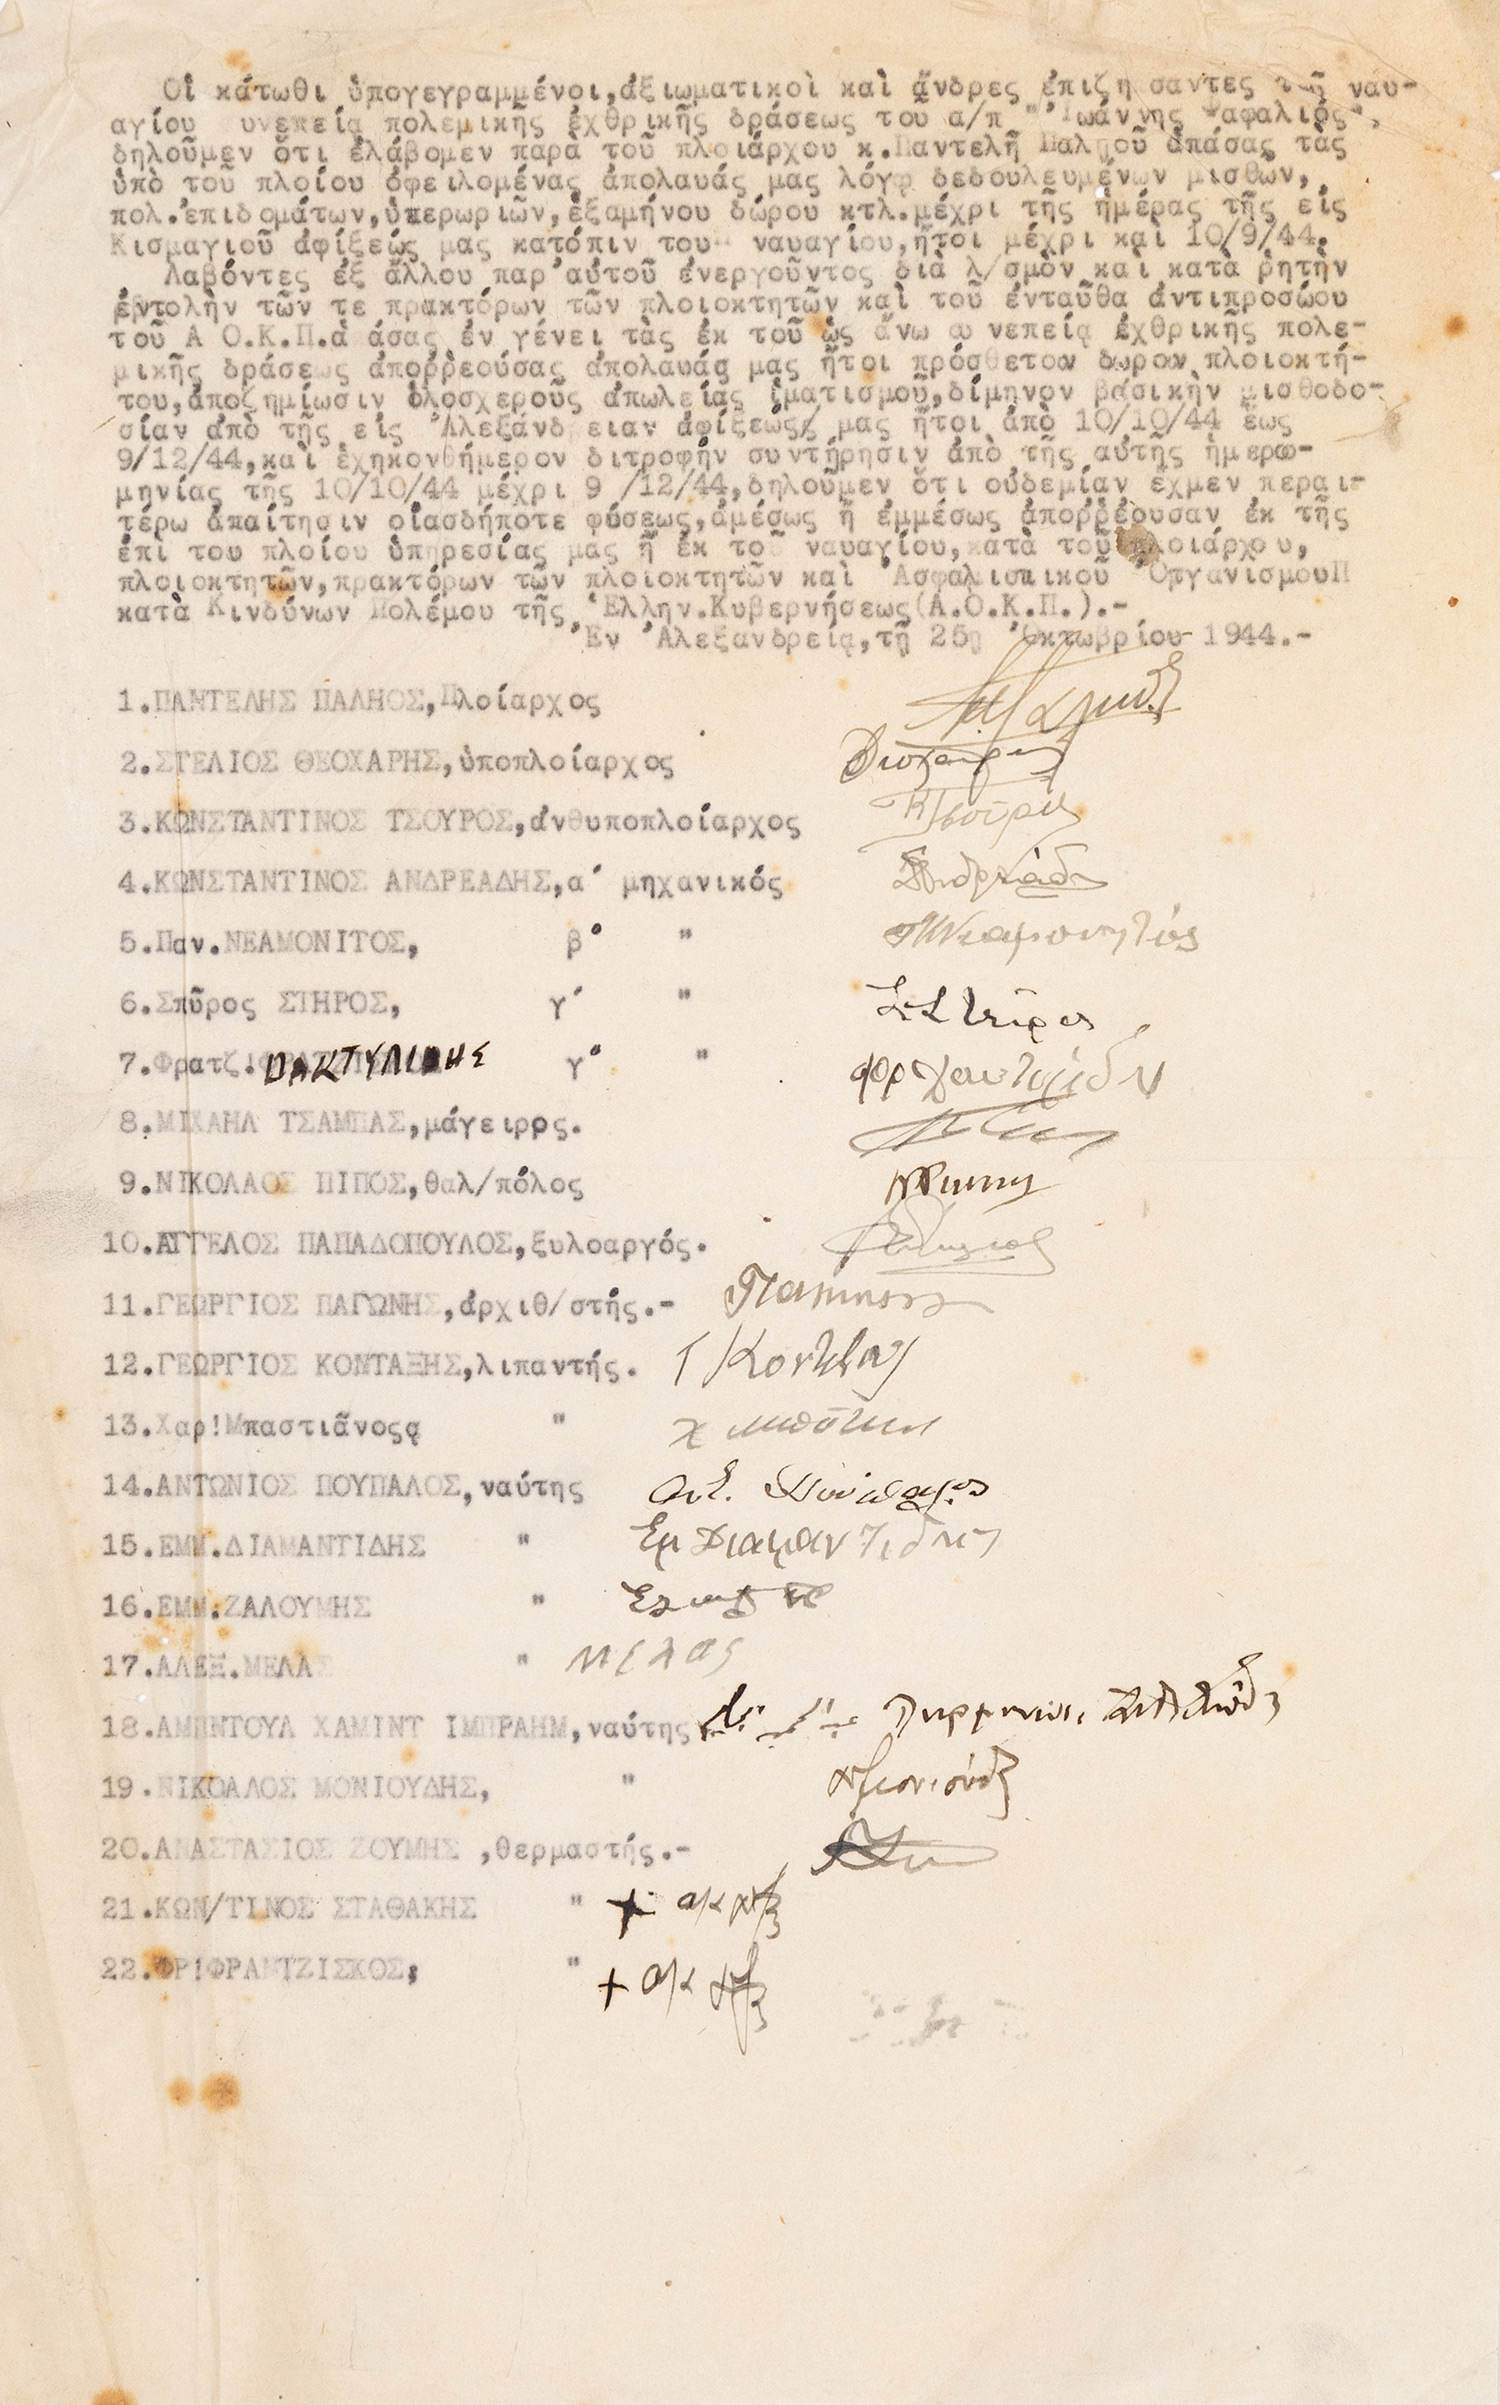 Οἱ κάτωθι ὑπογεγραμμένοι,ἀξιωματικοὶ καὶ ἄνδρες ἐπιζη σαντες τ ῆ ναυ-
αγίου υνεπείᾳ πολεμικῆς ἐχθρικῆς δράσεως τοῦ α/π "Ἰωάννης Ψαφαλιός",
δηλοῦμεν ὅτι ἐλάβομεν παρὰ τοῦ πλοιάρχου κ.Παντελῆ Παληοῦ ἁπάσας τὰς
ὑπὸ τοῦ πλοίου ὀφειλομένας ἀπολαυάς μας λόγῳ δεδουλευμένων μισθων,
πολ.ἐπιδομάτων,ὑπερωριῶν,ἑξαμήνου δώρου κτλ.μέχρι τῆς ἡμέρας τῆς εἰς
Κισμαγιοῦ ἀφίξεώς μας κατόπιν του ναυαγίου,ἤτοι μέχρι καὶ 10/9/44.
Λαβόντες ἐξ ἄλλου παρ'αὐτοῦ ἐνεργοῦντος διὰ λ/σμὸν καὶ κατὰ ρητὴν
ἐντολὴν τῶν τε πρακτόρων τῶν πλοιοκτητῶν καὶ τοῦ ἐνταῦθα ἀντιπροσώου
τοῦ Α Ο.Κ.Π.ἁ άσας ἐν γένει τὰς ἐκ τοῦ ὡς ἄνω συνεπείᾳ ἐχθρικῆς πολε-
μικῆς δράσεως ἀπορρεούσας ἀπολαυάς μας ἤτοι πρόσθετον δωρον πλοιοκτή-
του,ἀποζημίωσιν ὁλοσχεροῦς ἀπωλείας ἱματισμοῦ,δίμηνον βασικὴν μισθοδο-
σίαν ἀπὸ τῆς εἰς Ἀλεξάνδ ειαν ἀφίξεώς μας ἤτοι ἀπὸ 10/10/44 ἕως
9/12/44,καὶ ἑχηκονθήμερον διτροφὴν συντήρησιν ἀπὸ τῆς αὐτῆς ἡμερο-
μηνίας τῆς 10/10/44 μέχρι 9 /12/44,δηλοῦμεν ὅτι οὐδεμίαν ἔχμεν περαι-
τέρω ἀπαίτησιν οἱασδήποτε φύσεως,ἀμέσως ἢ ἐμμέσως ἀπορρέουσαν ἐκ τῆς
ἐπὶ του πλοίου ὑπηρεσίας μας ἢ ἐκ τοῦ ναυαγίου,κατὰ τοῦ πλοιάρχου,
πλοιοκτητῶν,πρακτόρων τῶν πλοιοκτητῶν καὶ Ἀσφαλιστικοῦ ὈργανισμουΠ
κατὰ Κινδύνων Πολέμου τῆς Ἑλλην.Κυβερνήσεως(Α.Ο.Κ.Π.).-
Ἐν Ἀλεξανδρείᾳ,τῇ 25ῃ Ὀκτωβρίου 1944.-
1.ΠΑΝΤΕΛΗΣ ΠΑΛΗΟΣ,Πλοίαρχος
2.ΣΤΕΛΙΟΣ ΘΕΟΧΑΡΗΣ,ὑποπλοίαρχος
3.ΚΩΝΣΤΑΝΤΙΝΟΣ ΤΣΟΥΡΟΣ,ἀνθυποπλοίαρχος
4.ΚΩΝΣΤΑΝΤΙΝΟΣ ΑΝΔΡΕΑΔΗΣ,α΄ μηχανικός
5.Παν.ΝΕΑΜΟΝΙΤΟΣ, β΄ "
6.Σπῦρος ΣΤΗΡΟΣ, γ΄ "
7.Φρατζ! ΔΑΚΤΥΛΙΔΗΣ γ΄ "
8.ΜΙΧΑΗΛ ΤΣΑΜΠΑΣ,μάγειρος.
9.ΝΙΚΟΛΑΟΣ ΠΙΠΟΣ,θαλ/πόλος
10.ΑΓΓΕΛΟΣ ΠΑΠΑΔΟΠΟΥΛΟΣ,ξυλοαργός.
11.ΓΕΩΡΓΙΟΣ ΠΑΓΩΝΗΣ,ἀρχιθ/στής.-
12.ΓΕΩΡΓΙΟΣ ΚΟΝΤΑΞΗΣ,λιπαντής. Γ Κονταξης
13.Χαρ!Μπαστιᾶνοςς "
14.ΑΝΤΩΝΙΟΣ ΠΟΥΠΑΛΟΣ,ναύτης Αντ. Πούπαλος
15.ΕΜΜ.ΔΙΑΜΑΝΤΙΔΗΣ " Εμ Διαμαντιδης
16.ΕΜΜ.ΖΑΛΟΥΜΗΣ "
17.ΑΛΕΞ.ΜΕΛΑΣ " Μελας
18.ΑΜΠΝΤΟΥΛ ΧΑΜΙΝΤ ΙΜΠΡΑΗΜ,ναύτης
19.ΝΙΚΟΑΛΟΣ ΜΟΝΙΟΥΔΗΣ, "
20.ΑΝΑΣΤΑΣΙΟΣ ΖΟΥΜΗΣ ,θερμαστής.-
21.ΚΩΝ/ΤΙΝΟΣ ΣΤΑΘΑΚΗΣ " +
22.ΦΡ!ΦΡΑΝΤΖΙΣΚΟΣ, " +